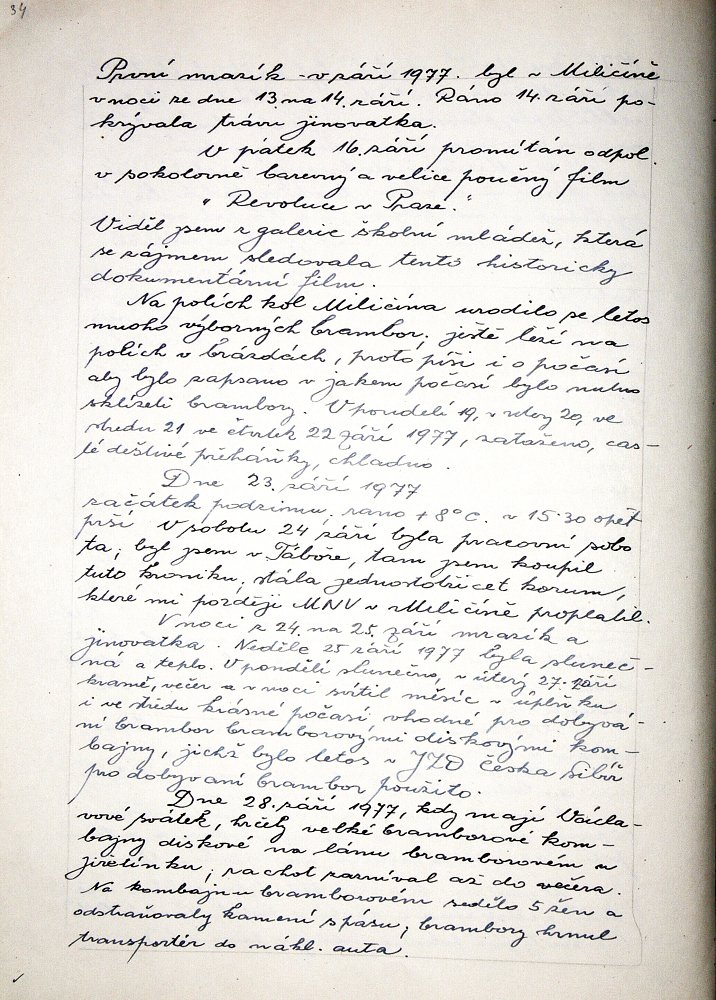 34
První mrazík - v září 1977. byl v Miličíně
v noci ze dne 13. na 14. září. Ráno 14. září po-
krývala trávu jinovatka.
V pátek 16. září promítán odpol.
v sokolovně barevný a velice poučný film
"Revoluce v Praze."
Viděl jsem z galerie školní mládež, která
se zájmem sledovala tento historicky
dokumentární film.
Na polích kol Miličína urodilo se letos
mnoho výborných brambor, ještě leží na
polích v brázdách, proto píši i o počasí
aby bylo zapsano v jakem počasí bylo nutno
sklízeti brambory. V pondělí 19, v úterý 20, ve
středu 21 ve čtvrtek 22 září 1977, zataženo, čas-
té deštivé přeháňky, chladno.
Dne 23. září 1977
začátek podzimu. rano + 8° C. v 15·30 opět
prší V sobotu 24 září byla pracovní sobo
ta, byl jsem v Táboře, tam jsem koupil
tuto kroniku, stála jednostotřicet korum,
které mi později MNV v Miličíně proplatil.
V noci z 24. na 25. září mrazík a
jinovatka. Neděle 25 září 1977 byla sluneč-
ná a teplo. V pondělí slunečno, v úterý 27. září
krasně, večer a v noci svítil měsíc v úplňku
i ve středu krásné počasí vhodné pro dobývá-
ní brambor bramborovými diskovými kom-
bajny, jichž bylo letos v JZD Česka Sibiř
pro dobývaní brambor použito.
Dne 28. září 1977, kdy mají Václa-
vové svátek, hrčely velké bramborové kom-
bajny diskové na lánu bramborovém u
Jiřetínku, rachot zazníval až do večera.
Na kombajnu bramborovém sedělo 5 žen a
odstraňovaly kamení s pásu, brambory hrnul
transportér do nákl. auta.